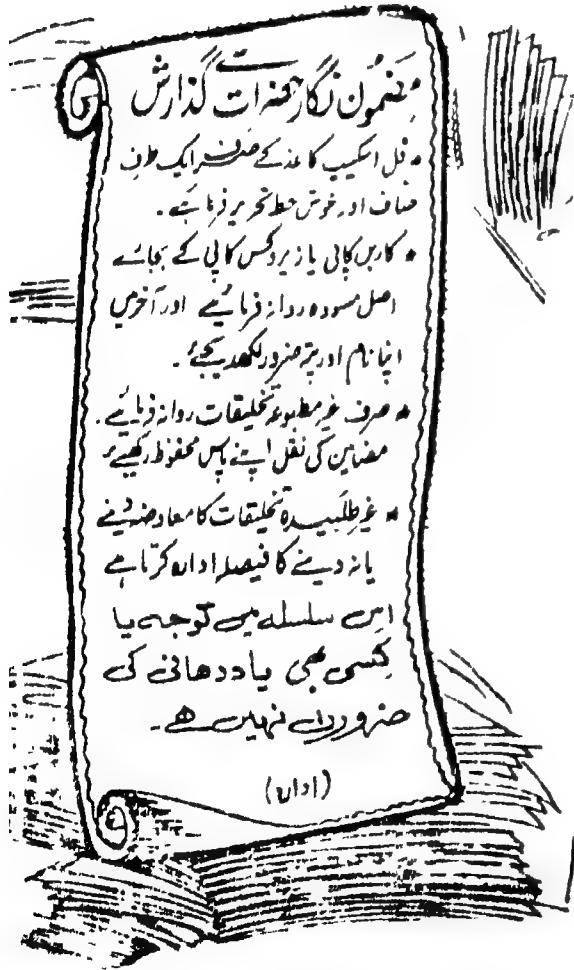 مضمون نگار حضرات سے گذارش
* فل اسکیپ کاغذ کے صرف ایک طرف
صاف اور خوش خط تحریر فرمائیے۔
* کاربن کاپی یا زیروکس کاپی کے بجائے
اصل مسودہ روانہ فرمائیے اور آخر میں
اپنا نام اور پتہ ضرور لکھدیجئے۔
* صرف غیر مطبوعہ تخلیقات روانہ فرمائیے۔
مضامین کی نقل اپنے پاس محفوظ رکھیے۔
* غیر طلبیدہ تخلیقات کا معاوضہ دینے
یا نہ دینے کا فیصلہ ادارہ کرتا ہے
اس سلسلہ میں توجہ یا
کسی بھی یاددھانی کی
ضرورت نہیں ھے۔
(ادارہ)